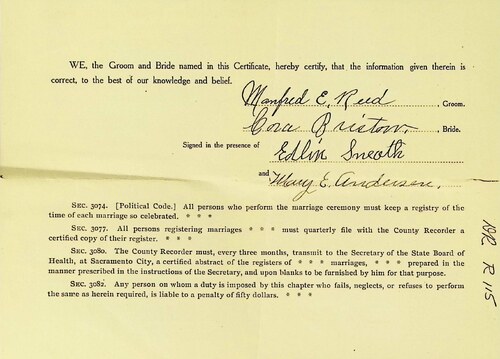 WE, the Groom and Bride named in this Certificate, hereby certify, that the information given therein is
correct, to the best of our knowledge and belief.
Manfred E. Reed, Groom.
Cora Bristow, Bride.
Signed in the presence of Edlin Sneath
and Mary E. Andersen.
SEC. 3074. [Political Code.] All persons who perform the marriage ceremony must keep a registry of
the time of each marriage so celebrated. * * *
SEC. 3077. All persons registering marriages * * * must quarterly file with the County Recorder a
certified copy of their register. * * *
SEC. 3080. The County Recorder must, every three months, transmit to the Secretary of the State Board of
Health, at Sacramento City, a certified abstract of the registers of * * * marriages, * * * prepared in the
manner prescribed in the instructions of the Secretary, and upon blanks to be furnished by him for that purpose.
SEC. 3082. Any person on whom a duty is imposed by this chapter who fails, neglects, or refuses to perform
the same as herein required, is liable to a penalty of fifty dollars. * * *
R 115